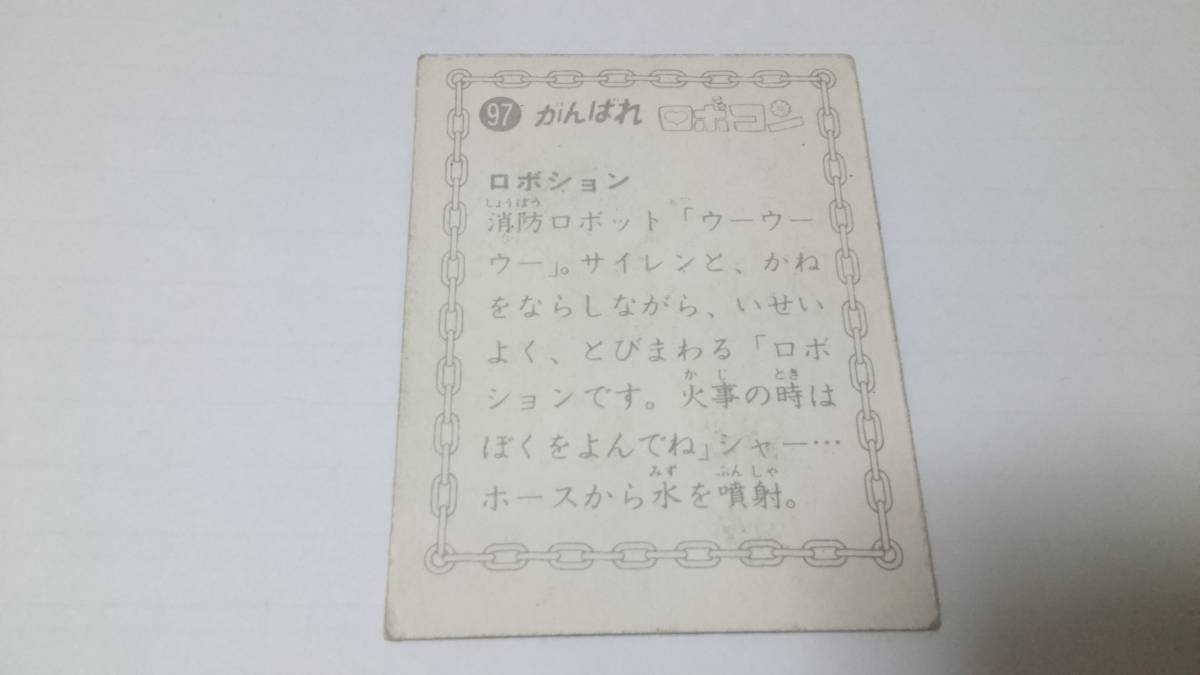 97 がんばれ ロボコン
ロボション
しょうぼう
消防ロボット「ウーウー
ウー」。サイレンと、かね
をならしながら、いせい
よく、とびまわる「ロボ
かじ とき
ションです。火事の時は
ぼくをよんでね」シャー…
みず ふんしゃ
ホースから水を噴射。